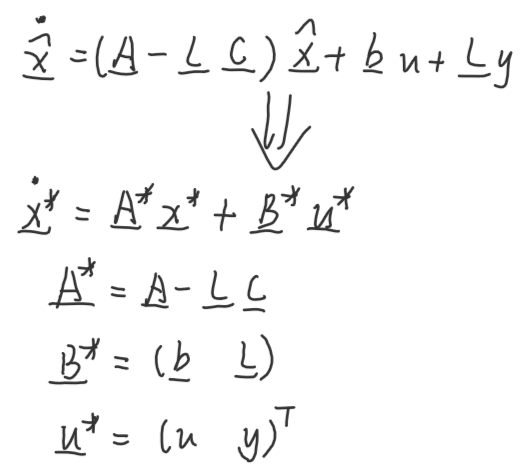 $\dot{\hat{\underline{x}}} = (\underline{A} - \underline{L}\,\underline{C})\,\hat{\underline{x}} + \underline{b}\,u + \underline{L}\,y$
$\Downarrow$
$\dot{\underline{x}}^* = \underline{A}^* \underline{x}^* + \underline{B}^* \underline{u}^*$
$\underline{A}^* = \underline{A} - \underline{L}\,\underline{C}$
$\underline{B}^* = (\underline{b} \quad \underline{L})$
$\underline{u}^* = (u \quad y)^T$